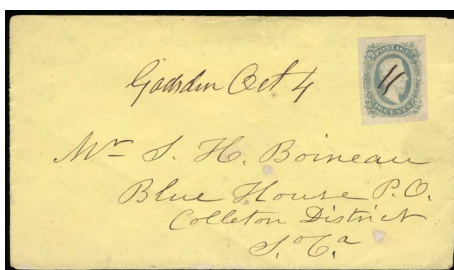 Gadsden Oct 4
POSTAGE
TEN CENTS
Mr S. H. Boineau
Blue House P.O.
Colleton District
So Ca